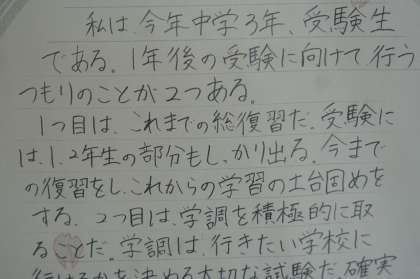 私は、今年中学3年、受験生
である。1年後の受験に向けて、行う
つもりのことが2つある。
1つ目は、これまでの総復習だ。受験に
は、1、2年生の部分もしっかり出る。今まで
の復習をし、これからの学習の土台固めを
する。2つ目は、学調を積極的に取
ることだ。学調は、行きたい学校に
行けるかを決める大切な試験だ。確実